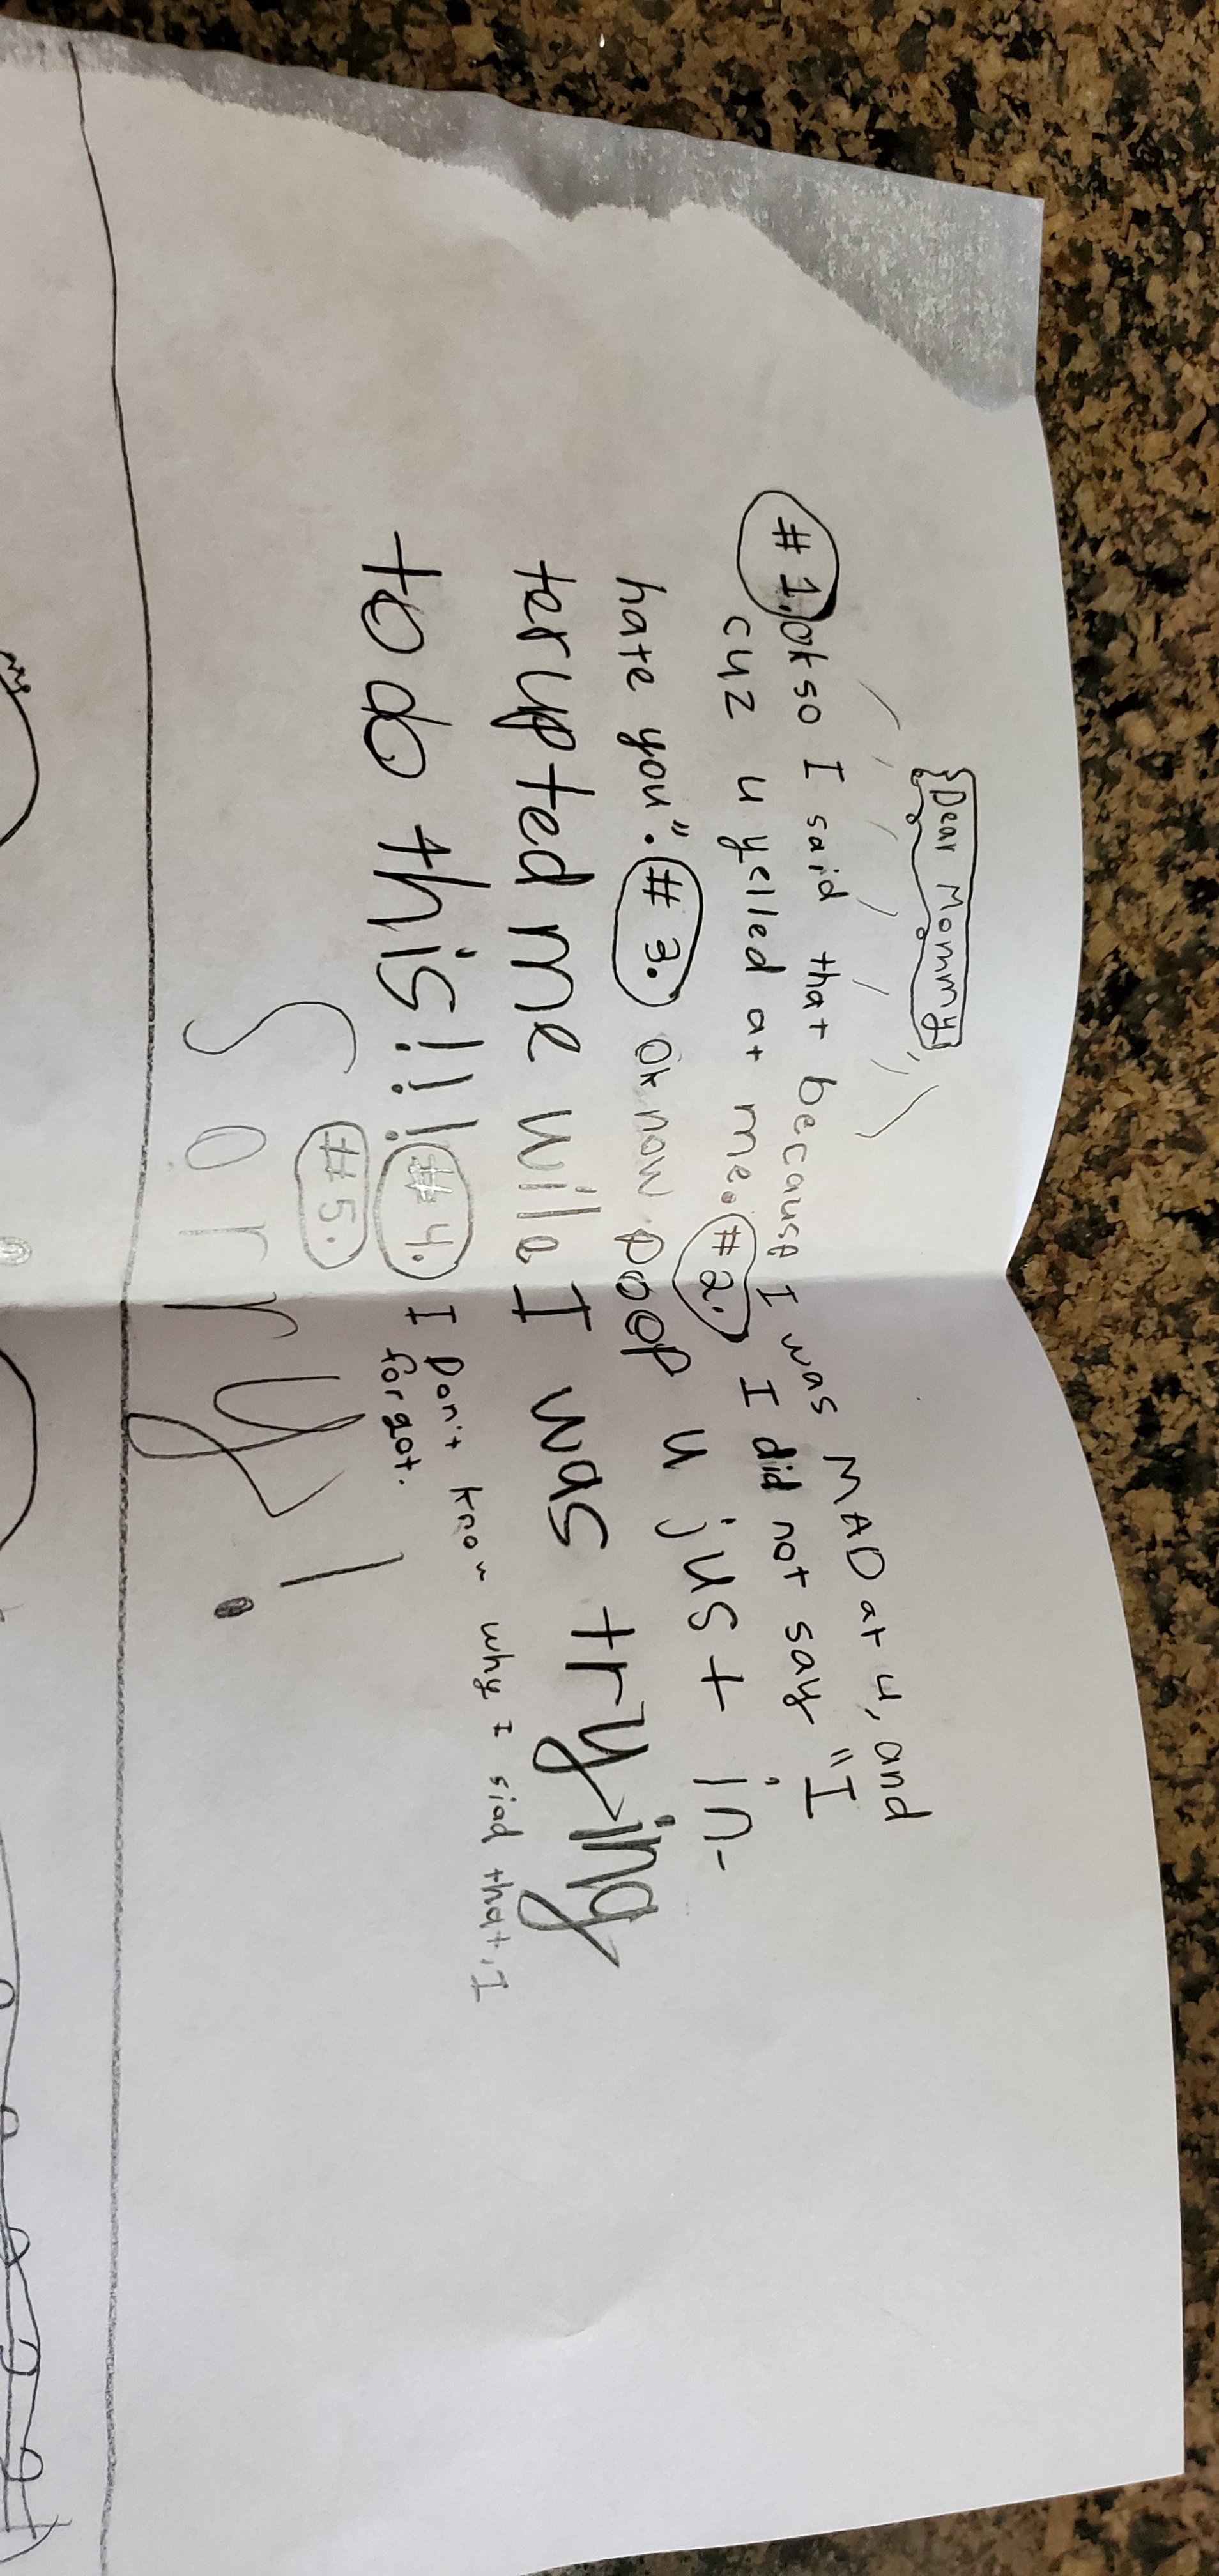 Dear Mommy
#1. ok so I said that because I was MAD at u, and
cuz u yelled at me. #2. I did not say "I
hate you". #3. ok now poop u just in-
terupted me wile I was trying
to do this!!! #4. I Don't know why I siad that, I
forgot.
#5.
Sorry!